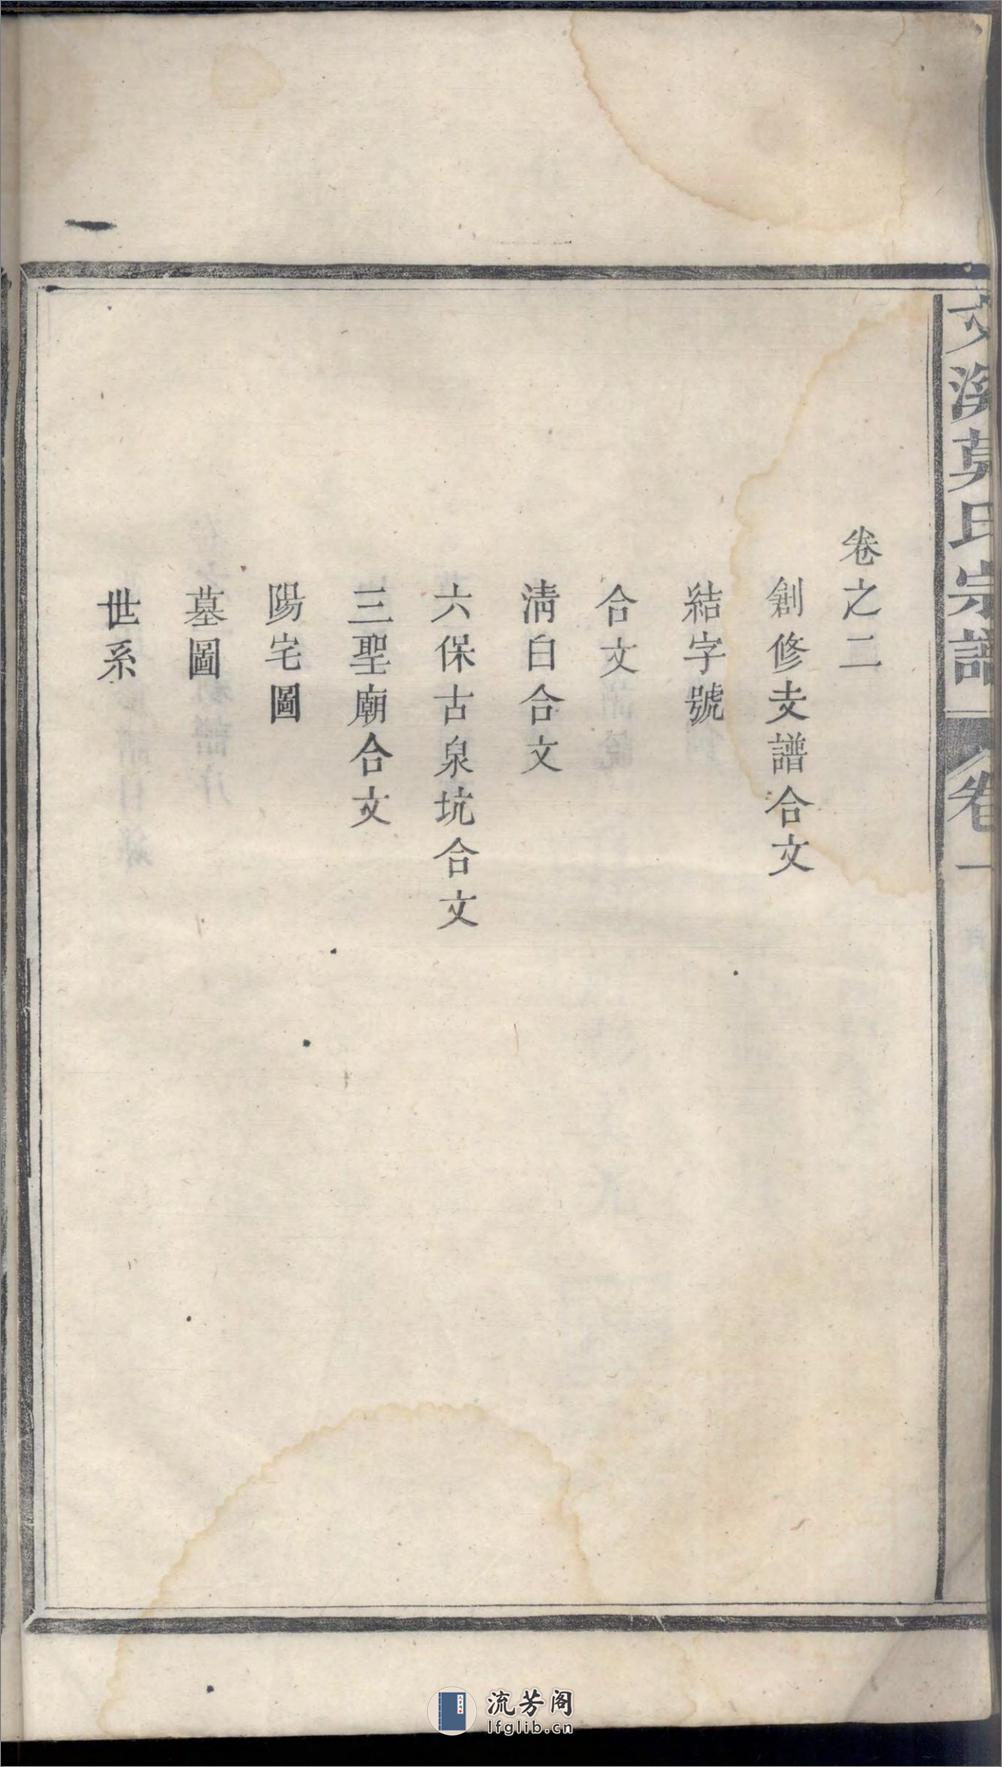 文溪莫氏宗譜
卷一
卷之二
創修支譜合文
結字號
合文
清白合文
六保古泉坑合文
三聖廟合文
陽宅圖
墓圖
世系
流芳阁
lfglib.cn